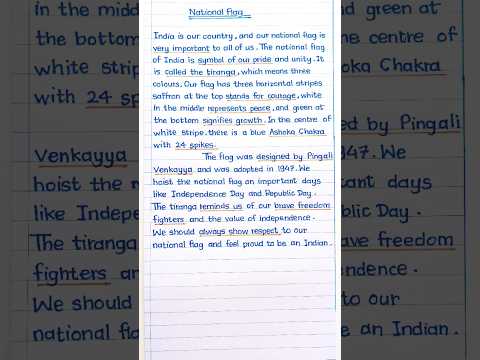 National flag
India is our country, and our national flag is
very important to all of us. The national flag
of India is symbol of our pride and unity. It
is called the tiranga, which means three
colours. Our flag has three horizontal stripes
saffron at the top stands for courage, white
in the middle represents peace, and green at
the bottom signifies growth. In the centre of
white stripe, there is a blue Ashoka Chakra
with 24 spikes.
The flag was designed by Pingali
Venkayya and was adopted in 1947. We
hoist the national flag on important days
like Independence Day and Republic Day.
The tiranga reminds us of our brave freedom
fighters and the value of independence.
We should always show respect to our
national flag and feel proud to be an Indian.